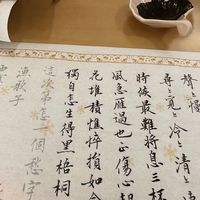 聲〻慢
尋〻覓〻冷〻清〻
時候最難將息三杯
風急雁過也正傷心
花堆積憔悴損如今
獨自怎生得黑梧桐
這次第怎一個愁字
漁歌子